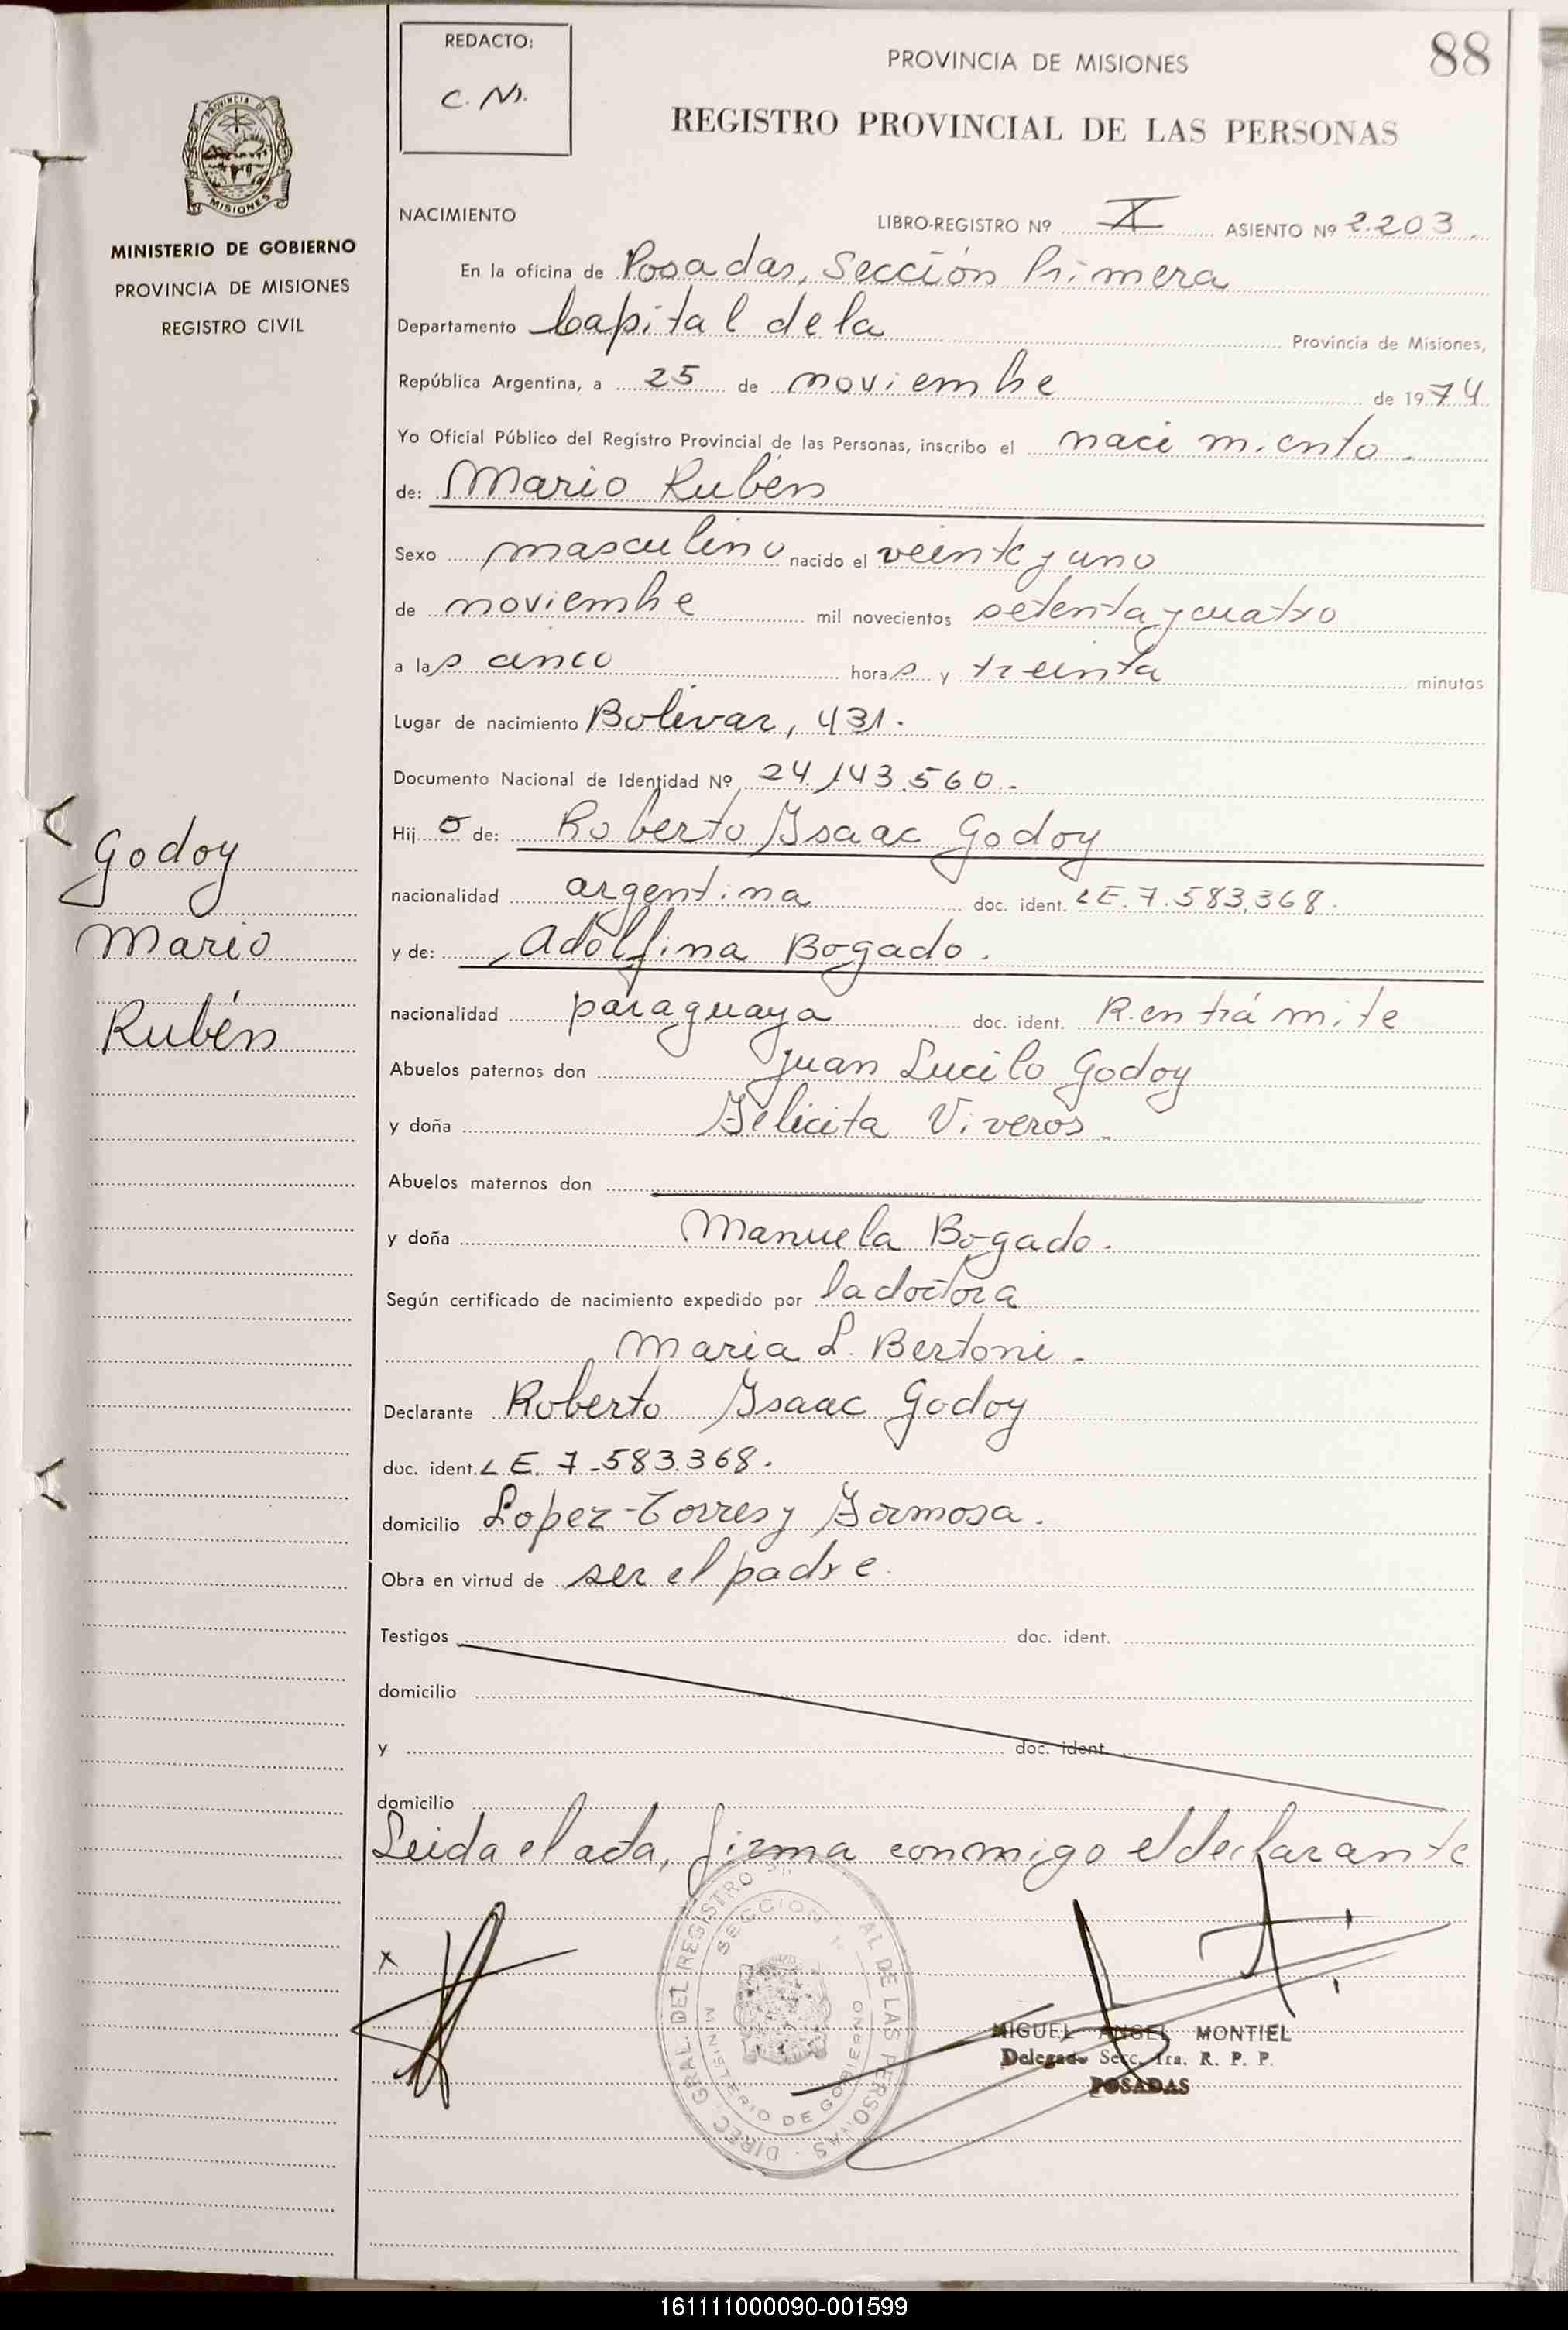 REDACTO:
C. N.
PROVINCIA DE MISIONES
88
REGISTRO PROVINCIAL DE LAS PERSONAS
PROVINCIA DE
MISIONES
MINISTERIO DE GOBIERNO
PROVINCIA DE MISIONES
REGISTRO CIVIL
NACIMIENTO LIBRO-REGISTRO Nº X ASIENTO Nº 2.203
En la oficina de Posadas, Sección Primera
Departamento Capital de la Provincia de Misiones,
República Argentina, a 25 de noviembre de 1974
Yo Oficial Público del Registro Provincial de las Personas, inscribo el nacimiento.
de: Mario Rubén
Sexo masculino nacido el veinte y uno
de noviembre mil novecientos setenta y cuatro
a las cinco horas y treinta minutos
Lugar de nacimiento Bolívar, 431.
Documento Nacional de Identidad Nº 24.143.560.-
Hijo de: Roberto Isaac Godoy
nacionalidad argentina doc. ident. LE. 7.583.368.
y de: Adolfina Bogado.
nacionalidad paraguaya doc. ident. R. en trámite
Abuelos paternos don Juan Lucilo Godoy
y doña Felicita Viveros.
Abuelos maternos don
y doña Manuela Bogado.
Según certificado de nacimiento expedido por la doctora
Maria L. Bertoni.-
Declarante Roberto Isaac Godoy
doc. ident. LE. 7.583.368.
domicilio Lopez Torres y Formosa.
Obra en virtud de ser el padre.
Testigos doc. ident.
domicilio
y doc. ident.
domicilio
Leida el acta, firma conmigo el declarante
Godoy
Mario
Rubén
x
DIREC. GRAL. DEL REGISTRO AL DE LAS PERSONAS
SECCION 1ª
MINISTERIO DE GOBIERNO
MIGUEL ANGEL MONTIEL
Delegado Secc. 1ra. R. P. P.
POSADAS
161111000090-001599